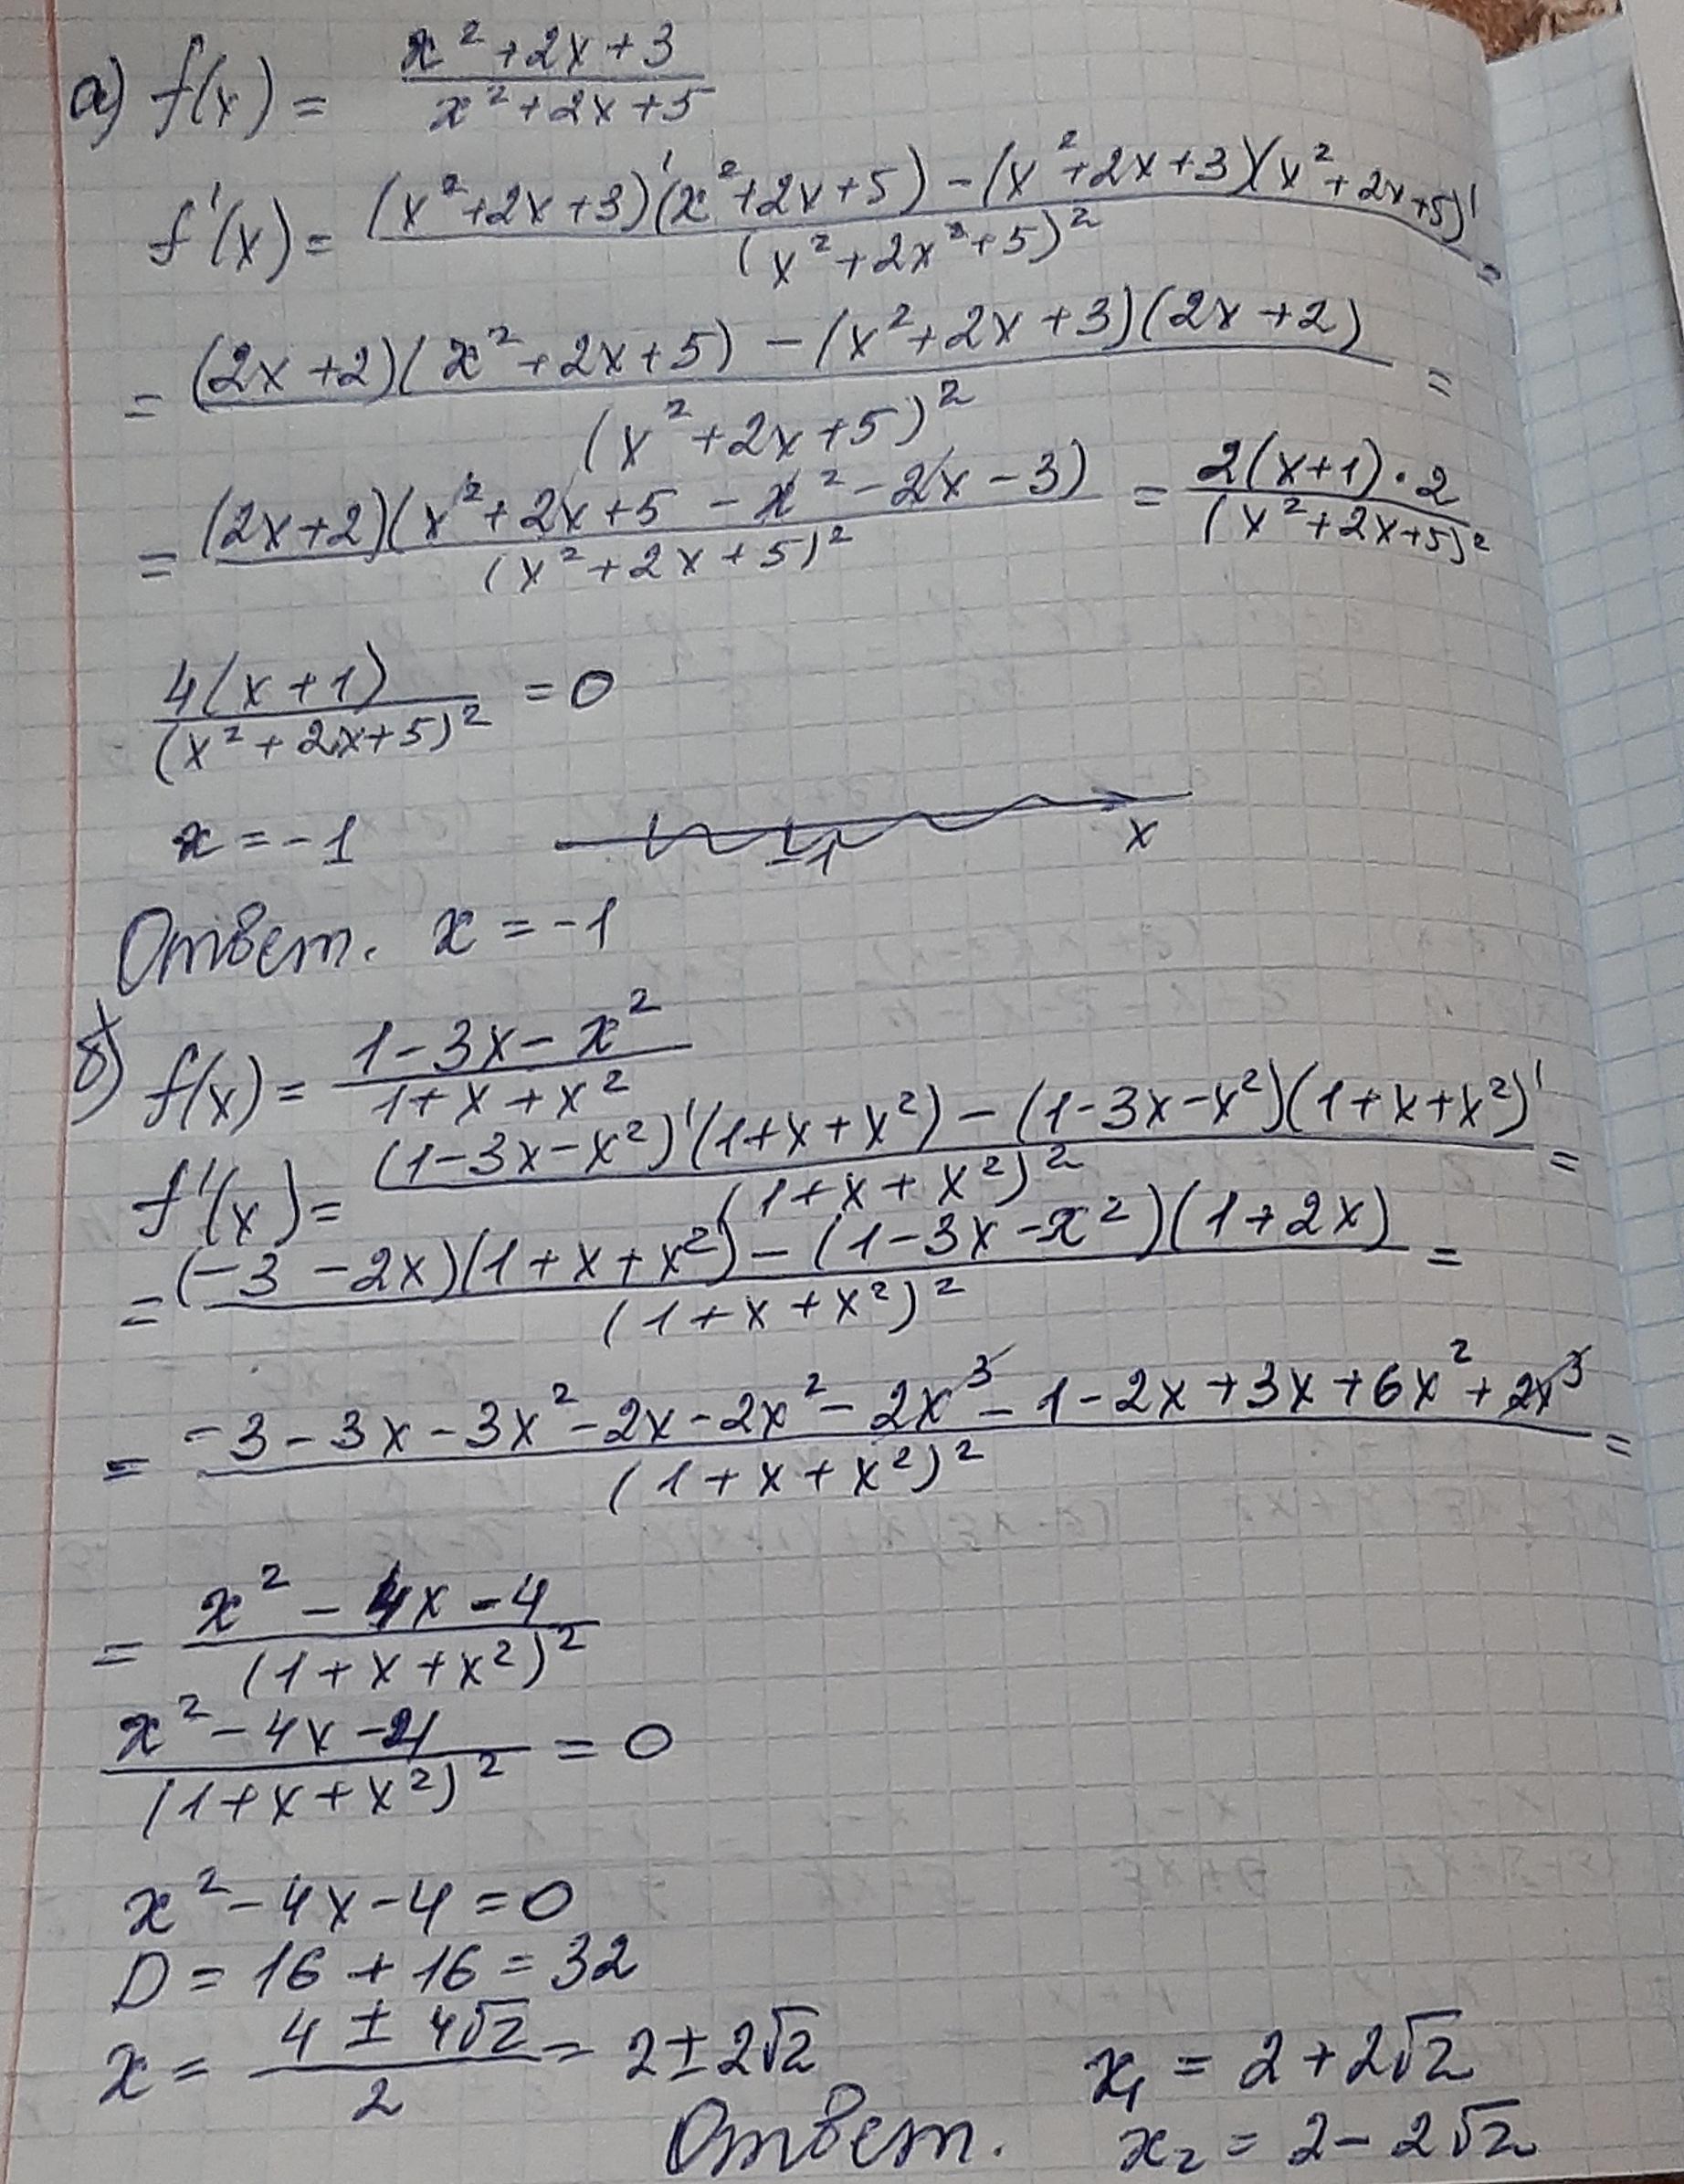 а) f(x) = (x² + 2x + 3)/(x² + 2x + 5)
f'(x) = ((x² + 2x + 3)'(x² + 2x + 5) - (x² + 2x + 3)(x² + 2x + 5)')/(x² + 2x² + 5)² =
= ((2x + 2)(x² + 2x + 5) - (x² + 2x + 3)(2x + 2))/(x² + 2x + 5)² =
= ((2x + 2)(x² + 2x + 5 - x² - 2x - 3))/(x² + 2x + 5)² = (2(x + 1) · 2)/(x² + 2x + 5)²
(4(x + 1))/(x² + 2x + 5)² = 0
x = -1
-1 x
Ответ. x = -1
б) f(x) = (1 - 3x - x²)/(1 + x + x²)
f'(x) = ((1 - 3x - x²)'(1 + x + x²) - (1 - 3x - x²)(1 + x + x²)')/(1 + x + x²)² =
= ((-3 - 2x)(1 + x + x²) - (1 - 3x - x²)(1 + 2x))/(1 + x + x²)² =
= (-3 - 3x - 3x² - 2x - 2x² - 2x³ - 1 - 2x + 3x + 6x² + 2x³)/(1 + x + x²)² =
= (x² - 4x - 4)/(1 + x + x²)²
(x² - 4x - 4)/(1 + x + x²)² = 0
x² - 4x - 4 = 0
D = 16 + 16 = 32
x = (4 ± 4√2)/2 = 2 ± 2√2
x₁ = 2 + 2√2
Ответ. x₂ = 2 - 2√2